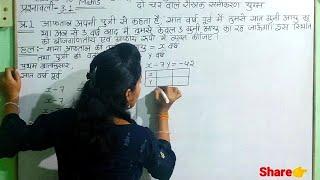 प्रश्नावली-3.1 Maths दो चर वाले रैखिक समीकरण युग्म
प्र.1 आफताब अपनी पुत्री से कहता है, सात वर्ष पूर्व मैं तुमसे सात गुनी आयु का
था। अब से 3 वर्ष बाद मैं तुमसे केवल 3 गुनी आयु का रह जाऊँगा। इस स्थिति
को बीजगणितीय एवं ग्राफीय रूपों में व्यक्त कीजिए।
हल:- माना आफताब की = x वर्ष
तथा पुत्री की y वर्ष
प्रथम
सात वर्ष पूर्व
x-7y = -42
x-7
x
y
x-7
x
Share